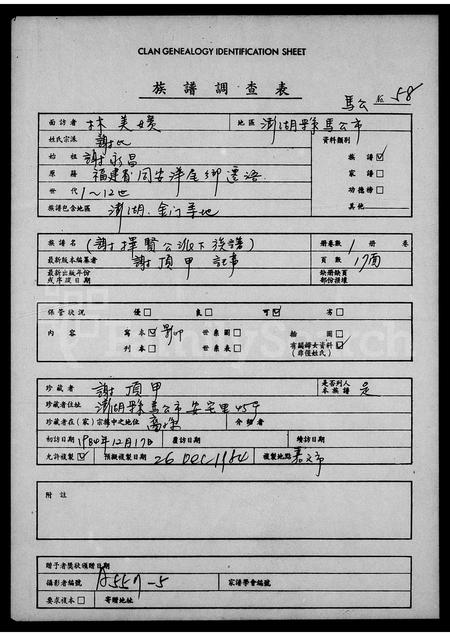 CLAN GENEALOGY IDENTIFICATION SHEET
族譜調查表
馬公 № 58
面訪者 林美嬪 地區 澎湖縣馬公市
姓氏宗派 謝氏 資料類別
始祖 謝永昌 族譜☑
原籍 福建省同安洋尾鄉遷活 家譜□
世代 1~12世 功德榜□
族譜包含地區 澎湖.金门等地 其他
族譜名 (謝擇賢公派下族譜) 冊卷數 1 冊 卷
最新版本編纂者 謝頂甲 記事 頁數 17面
最新出版年份 缺冊缺頁
或序跋日期 部份損壞
保管狀況 優□ 良□ 可☑ 劣□
內容 寫本☑ 影印 世系圖□ 插圖□
刊本□ 世系表□ 有關婦女資料☑
(非僅姓氏)
珍藏者 謝頂甲 是否列入本族譜 是
珍藏者住址 澎湖縣馬公市安宅里45号
珍藏者在(家)宗族中之地位 裔孫 介紹者
初訪日期 1984年12月17日 覆訪日期 續訪日期
允許複製☑ 預擬複製日期 26 DEC 1984 複製地點 嘉义市
附註
贈予者獎狀頒贈日期
攝影者編號 A5507-5 家譜學會編號
要求複本□ 寄贈地址
FamilySearch